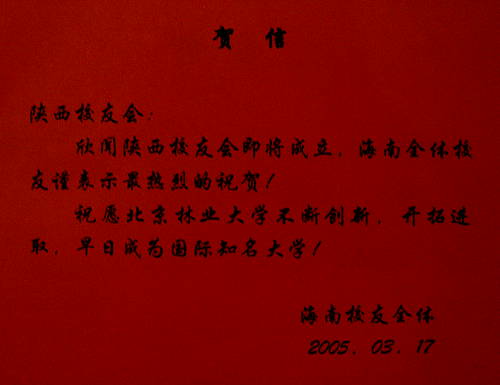 贺 信
陕西校友会：
欣闻陕西校友会即将成立，海南全体校
友谨表示最热烈的祝贺！
祝愿北京林业大学不断创新，开拓进
取，早日成为国际知名大学！
海南校友全体
2005．03．17